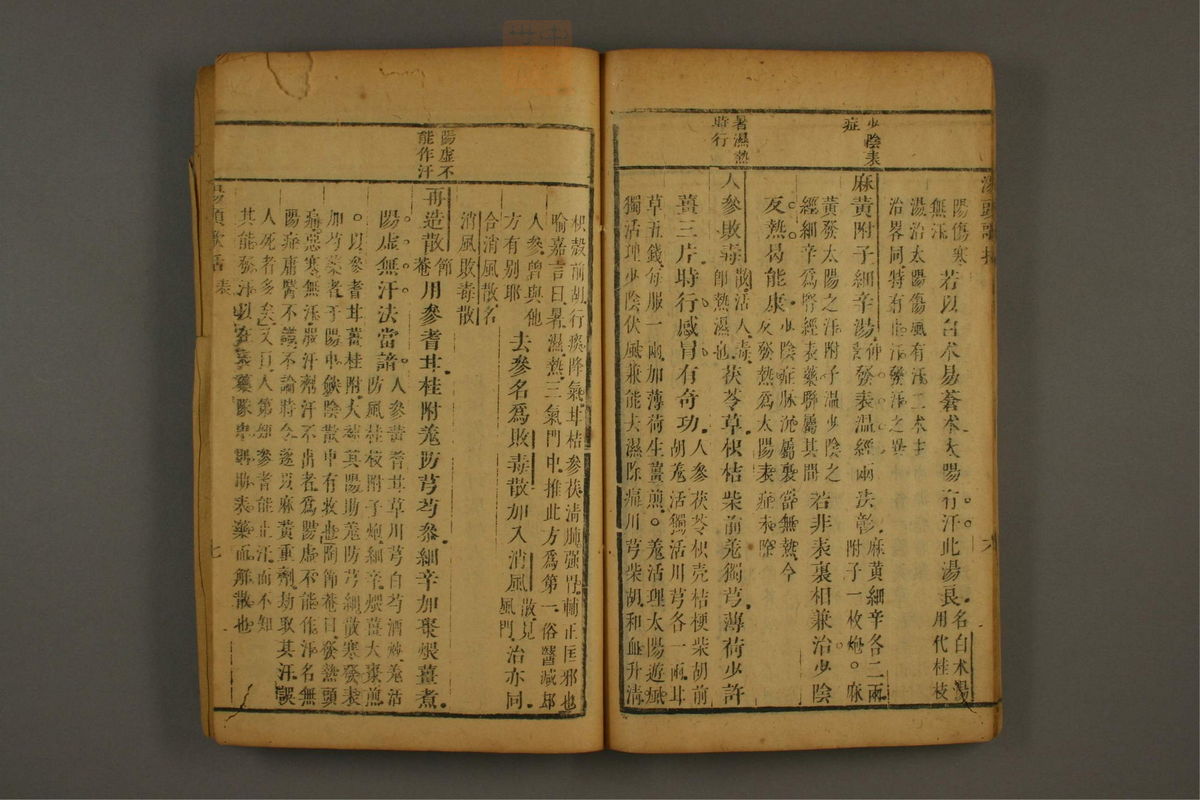 少陰表
症
暑濕熱
時行
陽傷寒
無汗
若以白朮易蒼朮太陽有汗此湯良
名白朮湯
用代桂枝
湯治太陽傷風有汗二朮主
治畧同特有止汗發汗之異
麻黃附子細辛湯
發表溫經兩法彰
麻黃細辛各二兩
附子一枚炮。麻
黃發太陽之汗附子溫少陰之
經細辛爲腎經表藥聯屬其間
若非表裏相兼治少陰
反熱曷能康
少陰症脉沉屬裏當無熱今
反發熱爲太陽表症未除
人參敗毒
散活人毒
卽熱濕也
茯苓草枳桔柴前羗獨芎薄荷少許
薑三片時行感冒有奇功
人參茯苓枳壳桔梗柴胡前
胡羗活獨活川芎各一兩甘
草五錢每服一兩加薄荷生薑煎。羗活理太陽遊風
獨活理少陰伏風兼能去濕除痛川芎柴胡和血升淸
陽虛不
能作汗
枳殼前胡行痰降氣甘桔參茯淸肺强胃輔正匡邪也
喻嘉言曰暑濕熱三氣門中推此方爲第一俗醫減却
人參曾與他
方有別耶
去參名爲敗毒散加入消風
散見
風門
治亦同
合消風散名
消風敗毒散
再造散
節
菴
用參耆甘桂附羗防芎芍參細辛加棗煨薑煮
陽虛無汗法當諳
人參黃耆甘草川芎白芍酒炒羗活
防風桂枝附子炮細辛煨薑大棗煎
。以參耆甘薑桂附大補其陽助羗防芎細散寒發表
加芍藥者于陽中歛陰散中有收也陶節菴曰發熱頭
痛惡寒無汗服汗劑汗不出者爲陽虛不能作汗名無
陽症庸醫不識不論時令遂以麻黃重劑劫取其汗誤
人死者多矣又有人第知參耆能止汗而不知
其能發汗以在表藥隊中則助表藥而解散也
湯頭歌括
表
七